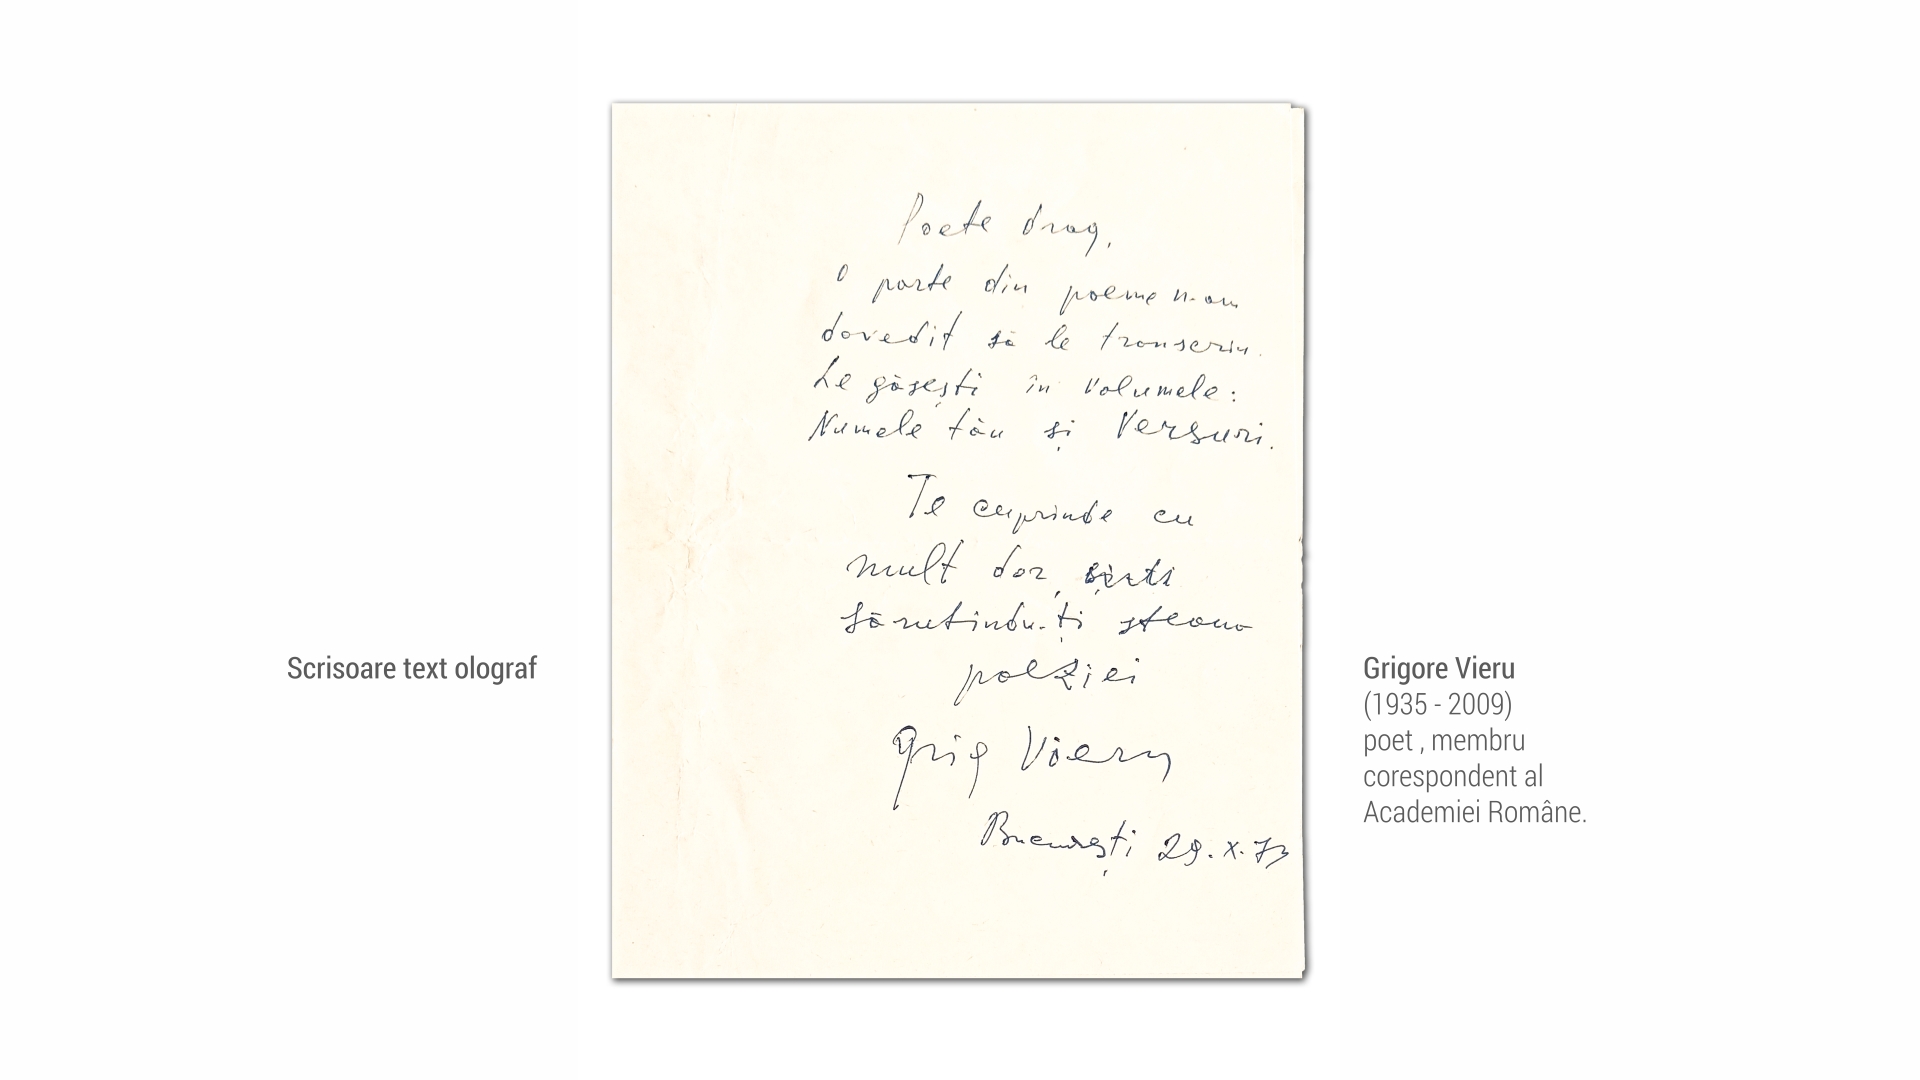 Poete drag,
O parte din poeme n-am
dovedit să le transcriu.
Le găsești în volumele:
Numele tău și Versuri.
Te cuprinde cu
mult dor,
sărutîndu-ți steaua
poeziei
Grig Vieru
București 29.X.73
Scrisoare text olograf
Grigore Vieru
(1935 - 2009)
poet , membru
corespondent al
Academiei Române.